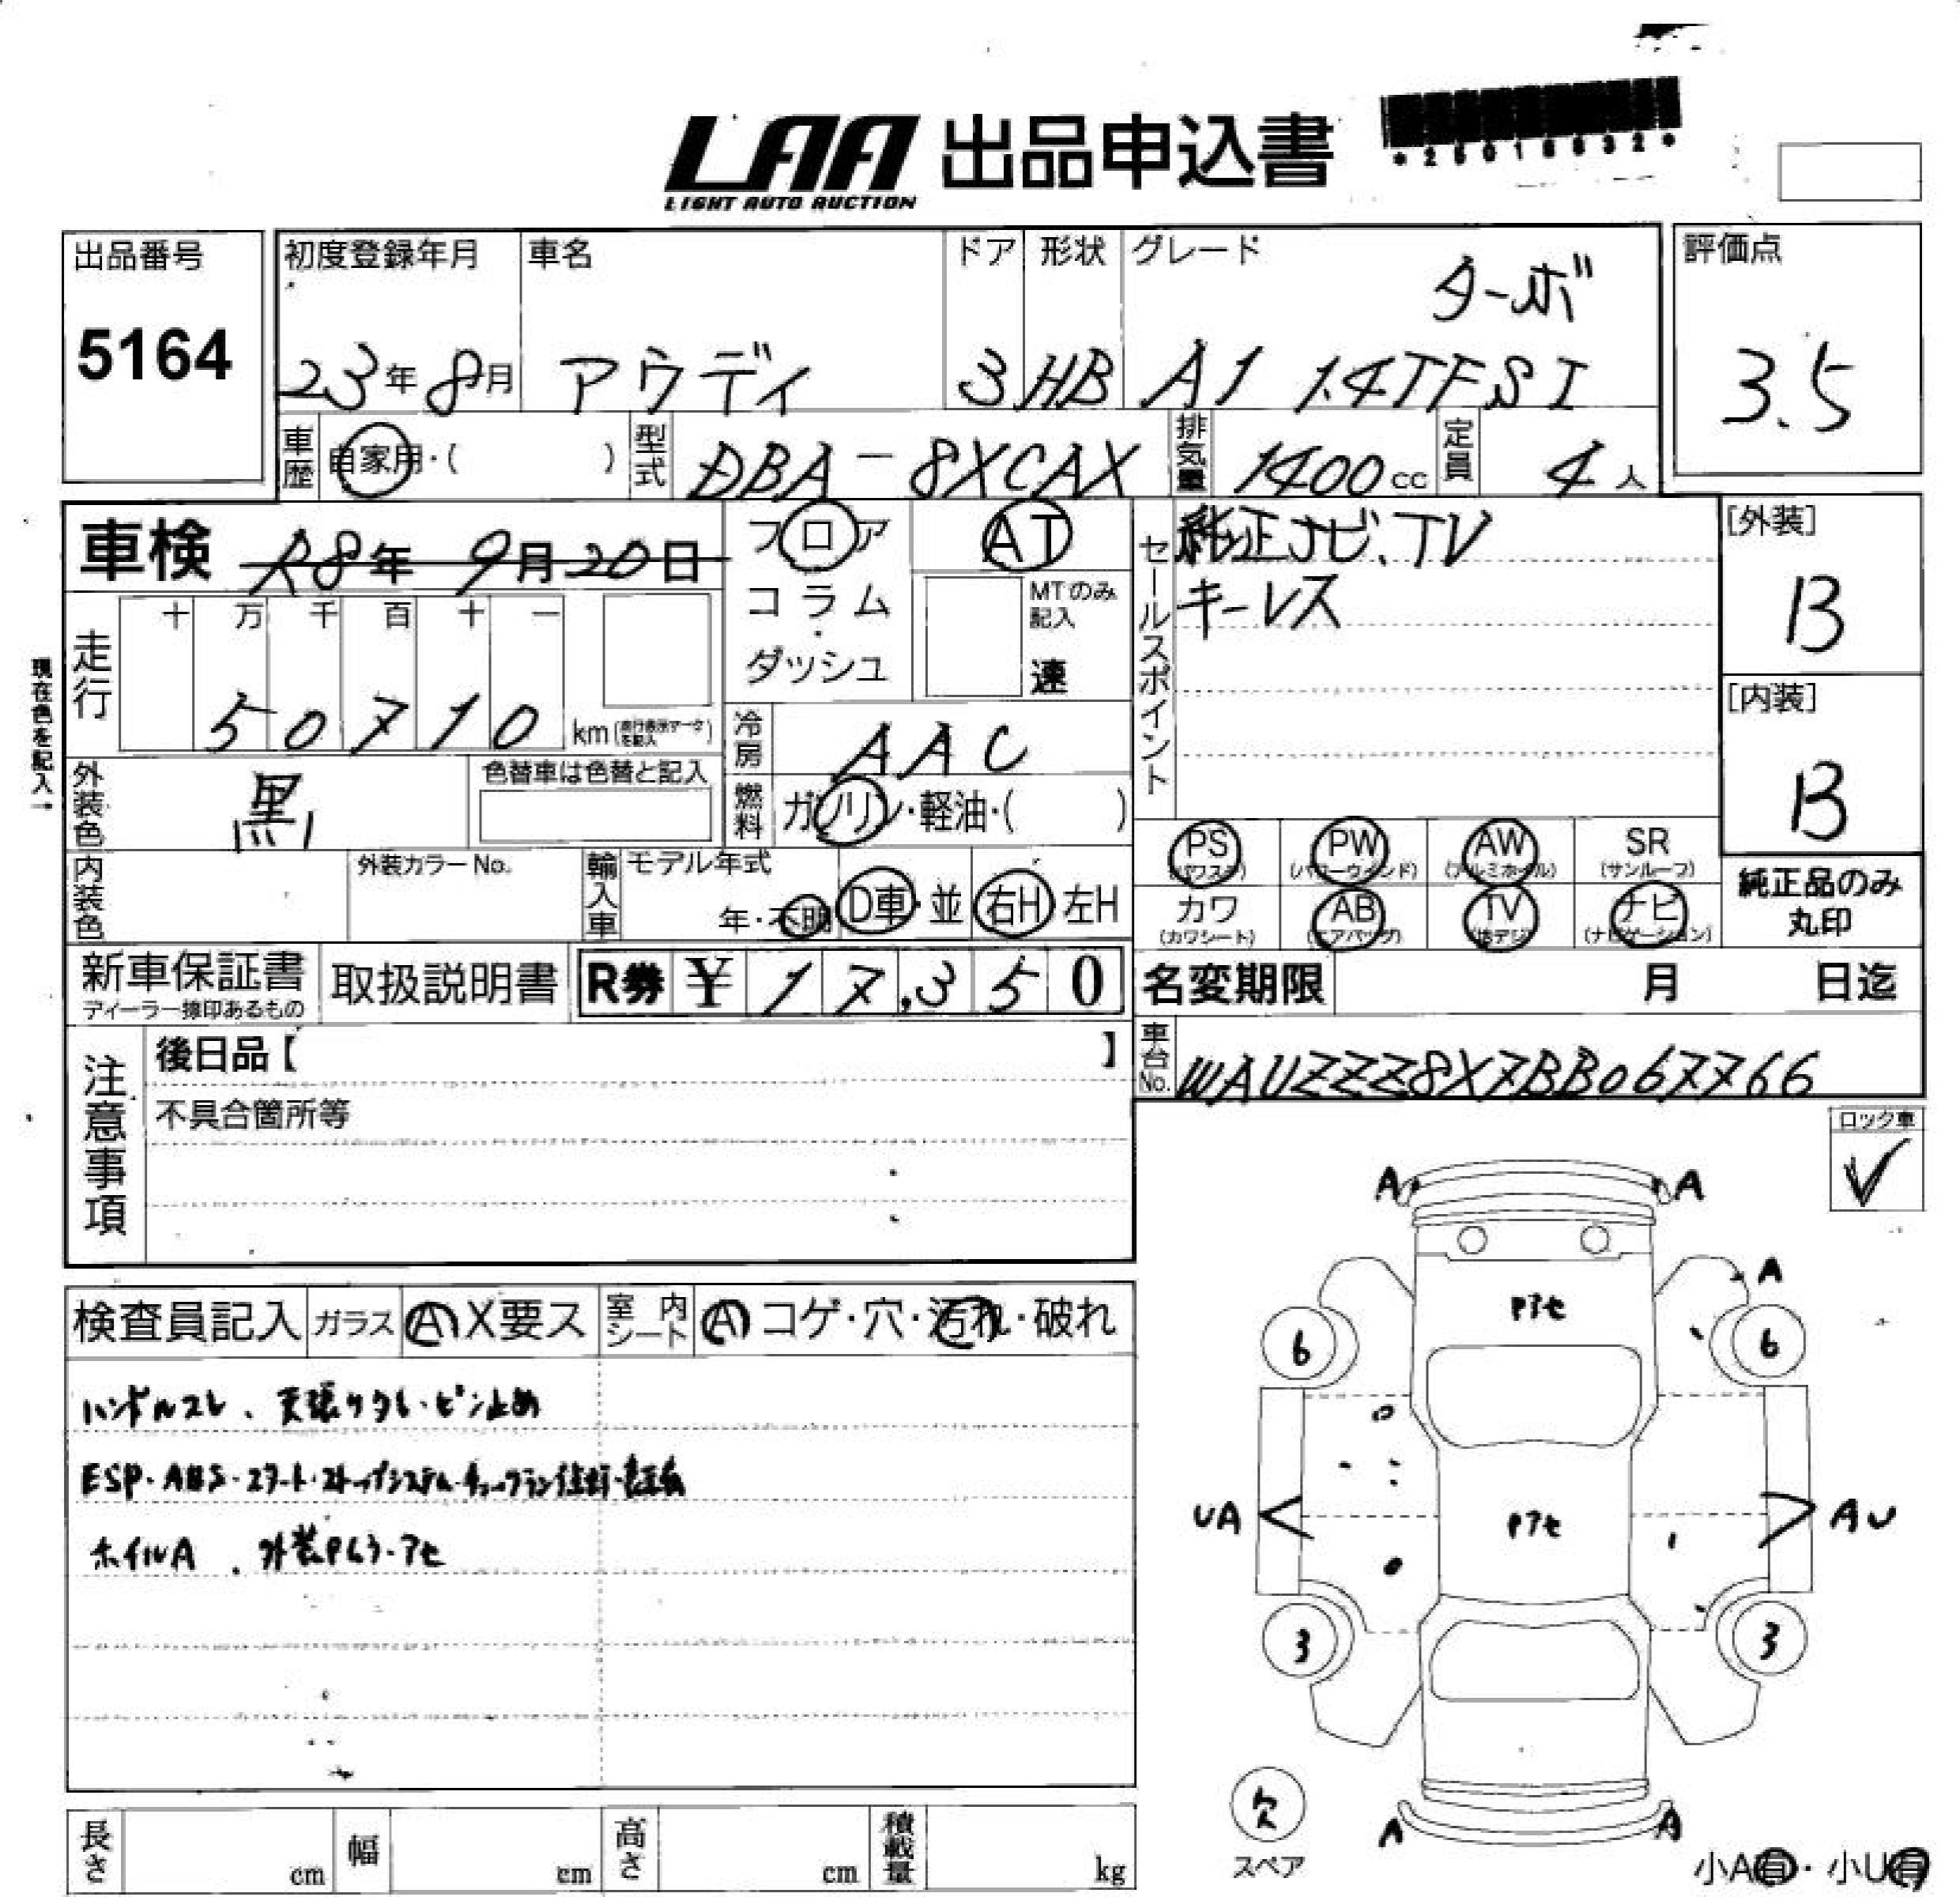 LAA 出品申込書
LIGHT AUTO AUCTION
出品番号
5164
初度登録年月 車名 ドア 形状 グレード
ターボ
23年8月 アウディ 3 HB A1 1.4TFSI
評価点
3.5
車歴 自家用・( ) 型式 DBA-8XCAX 排気量 1400cc 定員 4人
車検 R8年 9月20日
フロア AT
コラム・
ダッシュ
MTのみ
記入
速
セールスポイント
純正ナビ、TV
キーレス
[外装]
B
[内装]
B
現在色を記入→
走行 十 万 千 百 十 一
50710 km
冷房 AAC
燃料 ガソリン・軽油・( )
外装色 黒 色替車は色替と記入
内装色 外装カラーNo.
輸入車 モデル年式
年・不明 D車・並 右H 左H
PS PW AW SR
(パワステ) (パワーウィンド) (アルミホイル) (サンルーフ)
カワ AB TV ナビ
(カワシート) (エアバッグ) (地デジ) (ナビゲーション)
純正品のみ
丸印
新車保証書
ディーラー捺印あるもの
取扱説明書 R券 ¥ 17,350
名変期限 月 日迄
車台No. WAUZZZ8X7BB067766
注意事項
後日品【 】
不具合箇所等
ロック車
✓
検査員記入 ガラス A X要ス 室内シート A コゲ・穴・汚れ・破れ
ハンドルスレ、天張りタレ・ピン止め
ESP・ABS・スタート・ストップシステム・チェックランプ
ホイルA、外装
A A
A
Pアセ
6 6
UA AU
Pアセ
3 3
欠
スペア
A A
小A有・小U有
長さ cm 幅 cm 高さ cm 積載量 kg